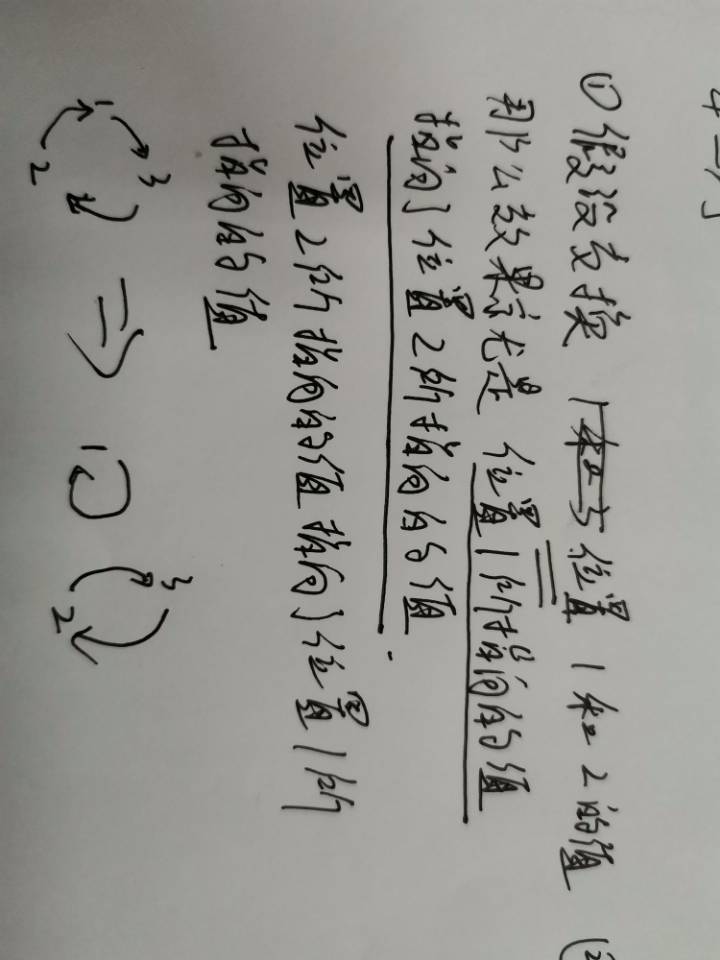 ①假设交换 位置 1 和 2 的值 ②
那么效果就是 位置1所指向的值
指向了位置2所指向的值.
位置2所指向的值指向了位置1所
指向的值
3 3
1 ⇒ 1
2 2